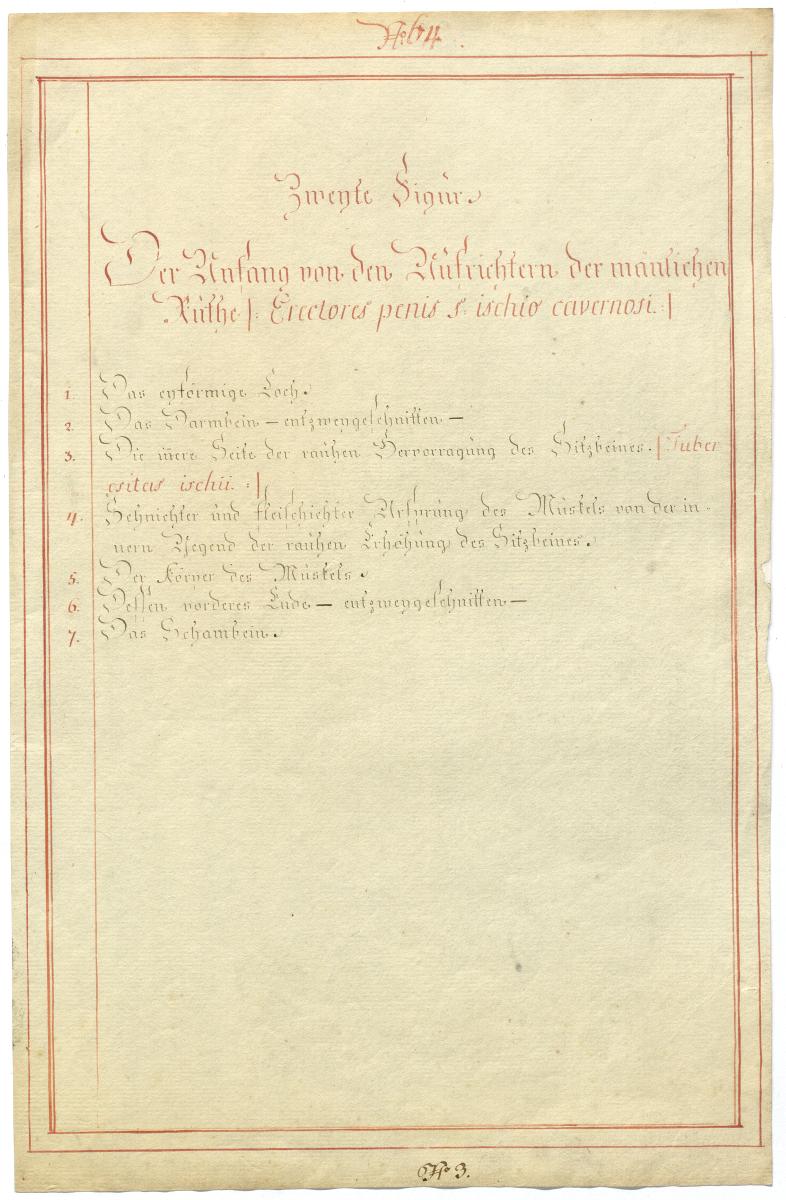 No 64.
Zweyte Figur.
Der Anfang von den Aufrichtern der mänlichen
Ruthe |: Erectores penis s. ischio cavernosi. :|
1. Das eyförmige Loch.
2. Das Darmbein — entzweygeschnitten —
3. Die iñere Seite der rauhen Hervorragung des Sitzbeines. |: Tuber
ositas ischii. :|
4. Sehnichter und fleischichter Ursprung des Muskels von der in-
nern Gegend der rauhen Erhöhung des Sitzbeines.
5. Der Körper des Muskels.
6. Dessen vorderes Ende — entzweygeschnitten —
7. Das Schambein.
No 3.